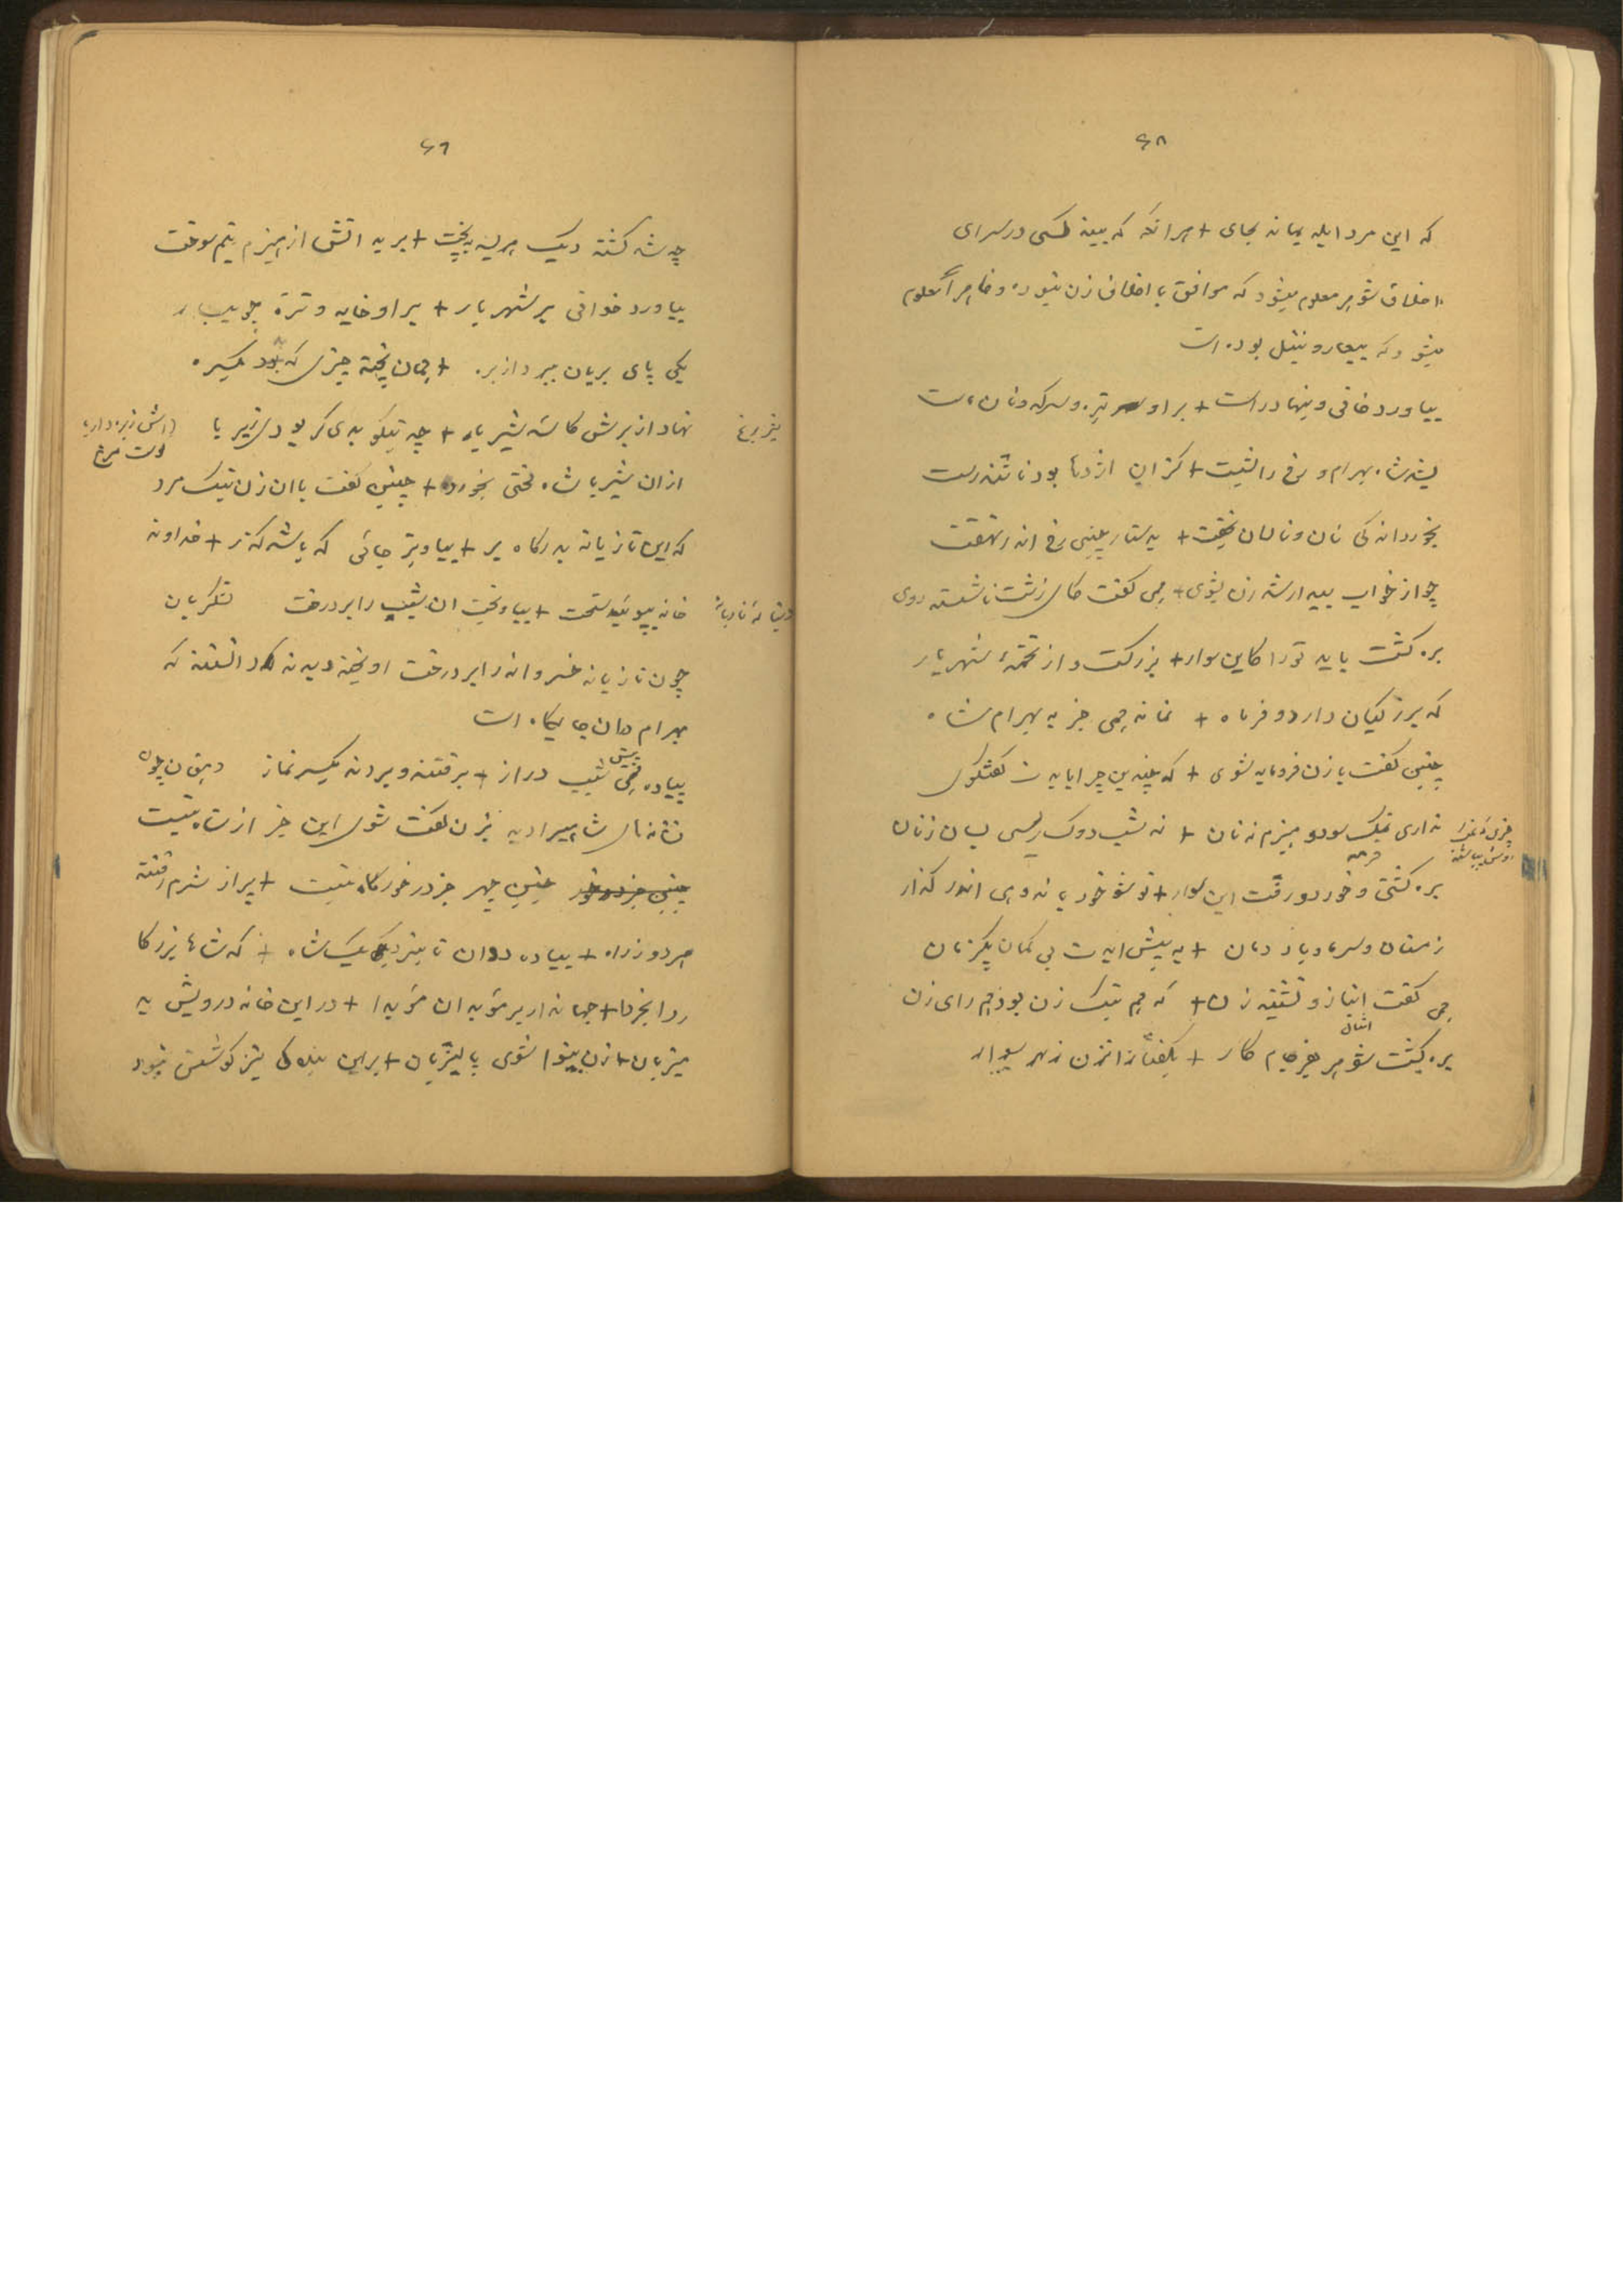 ۶۸
که این مرد ابله بماند بجای + هرانکه که بیند کسی در سرای
اخلاق شوهر معلوم میشود که موافق با اخلاق زن نبوده و ظاهراً معلوم
میشود که بیعار و تنبل بوده است
بیاورد خانی و بنهاد راست + براو تره و سرکه ونان
بشد شاه بهرام و رخ را بشست + کزان اژدها بود ناتندرست
بخورد اندکی نان ونالان بخفت + بدستار چینی رخ اندر نهفت
چو از خواب بیدار شد زن بشوی + همی گفت کای زشت ناشسته روی
بره کشت باید تورا کاین سوار + بزرکست و از تخمهٔ شهریار
که برز کیان دارد و فر ماه + نماند همی جز به بهرام شاه
چنین گفت با زن فرومایه شوی + که چندین چرا بایدت گفتگوی
نداری نمک سود و هیزم نه نان + نه شب دوک ریسی بسان زنان
بره کشتی و خورد و رفت این سوار + تو شو خر به اندر گذار
زمستان وسرما و باد دمان + به پیش ایدت بی کمان یکزمان
همی گفت انباز و نشنید زن + که هم نیک زن بود هم رای زن
بره کشته شد هم فرجام کار + بگفتار آنزن ز بهر سوار
۶۹
چه شد کشته دیک هریسه بپخت + برید اتش از هیزم نیم سوخت
بیاورد خوانی بر شهریار + براو خایه و ترهٔ جویبار
یکی پای بریان ببرد از بره + همان پخته چیزی که بد یکسره
نهاد از برش کاسه شیر با + چه نیکو بدی گر بودی زیر با
از ان شیربا شاه لختی بخورد + چنین گفت با ان زن نیک مرد
که این تازیانه بدرگاه بر + بیاویز جائی که باشد گذر + خداوند
خانه بپویید سخت + بیاویخت ان شیب را بر درخت لشکریان
چون تازیانه خسرو را بر درخت اویخته دیدند دانستند که
بهرام دران جایگاه است
پیاده همی پیش شیب دراز + برفتند و بردند یکسر نماز
بزن گفت شوی این جز از شاه نیست
چنین چهر جز در خور گاه نیست + پر از شرم رفتند
هردو ز راه + پیاده دوان تا بنزدیک شاه + که شاها بزرگا
ردا بخردا + جهاندار بر موبدان موبدا + در این خانه درویش بد
میزبان + زن بینوا شوی پالیزبان + براین بندگی نیز کوشش نبود